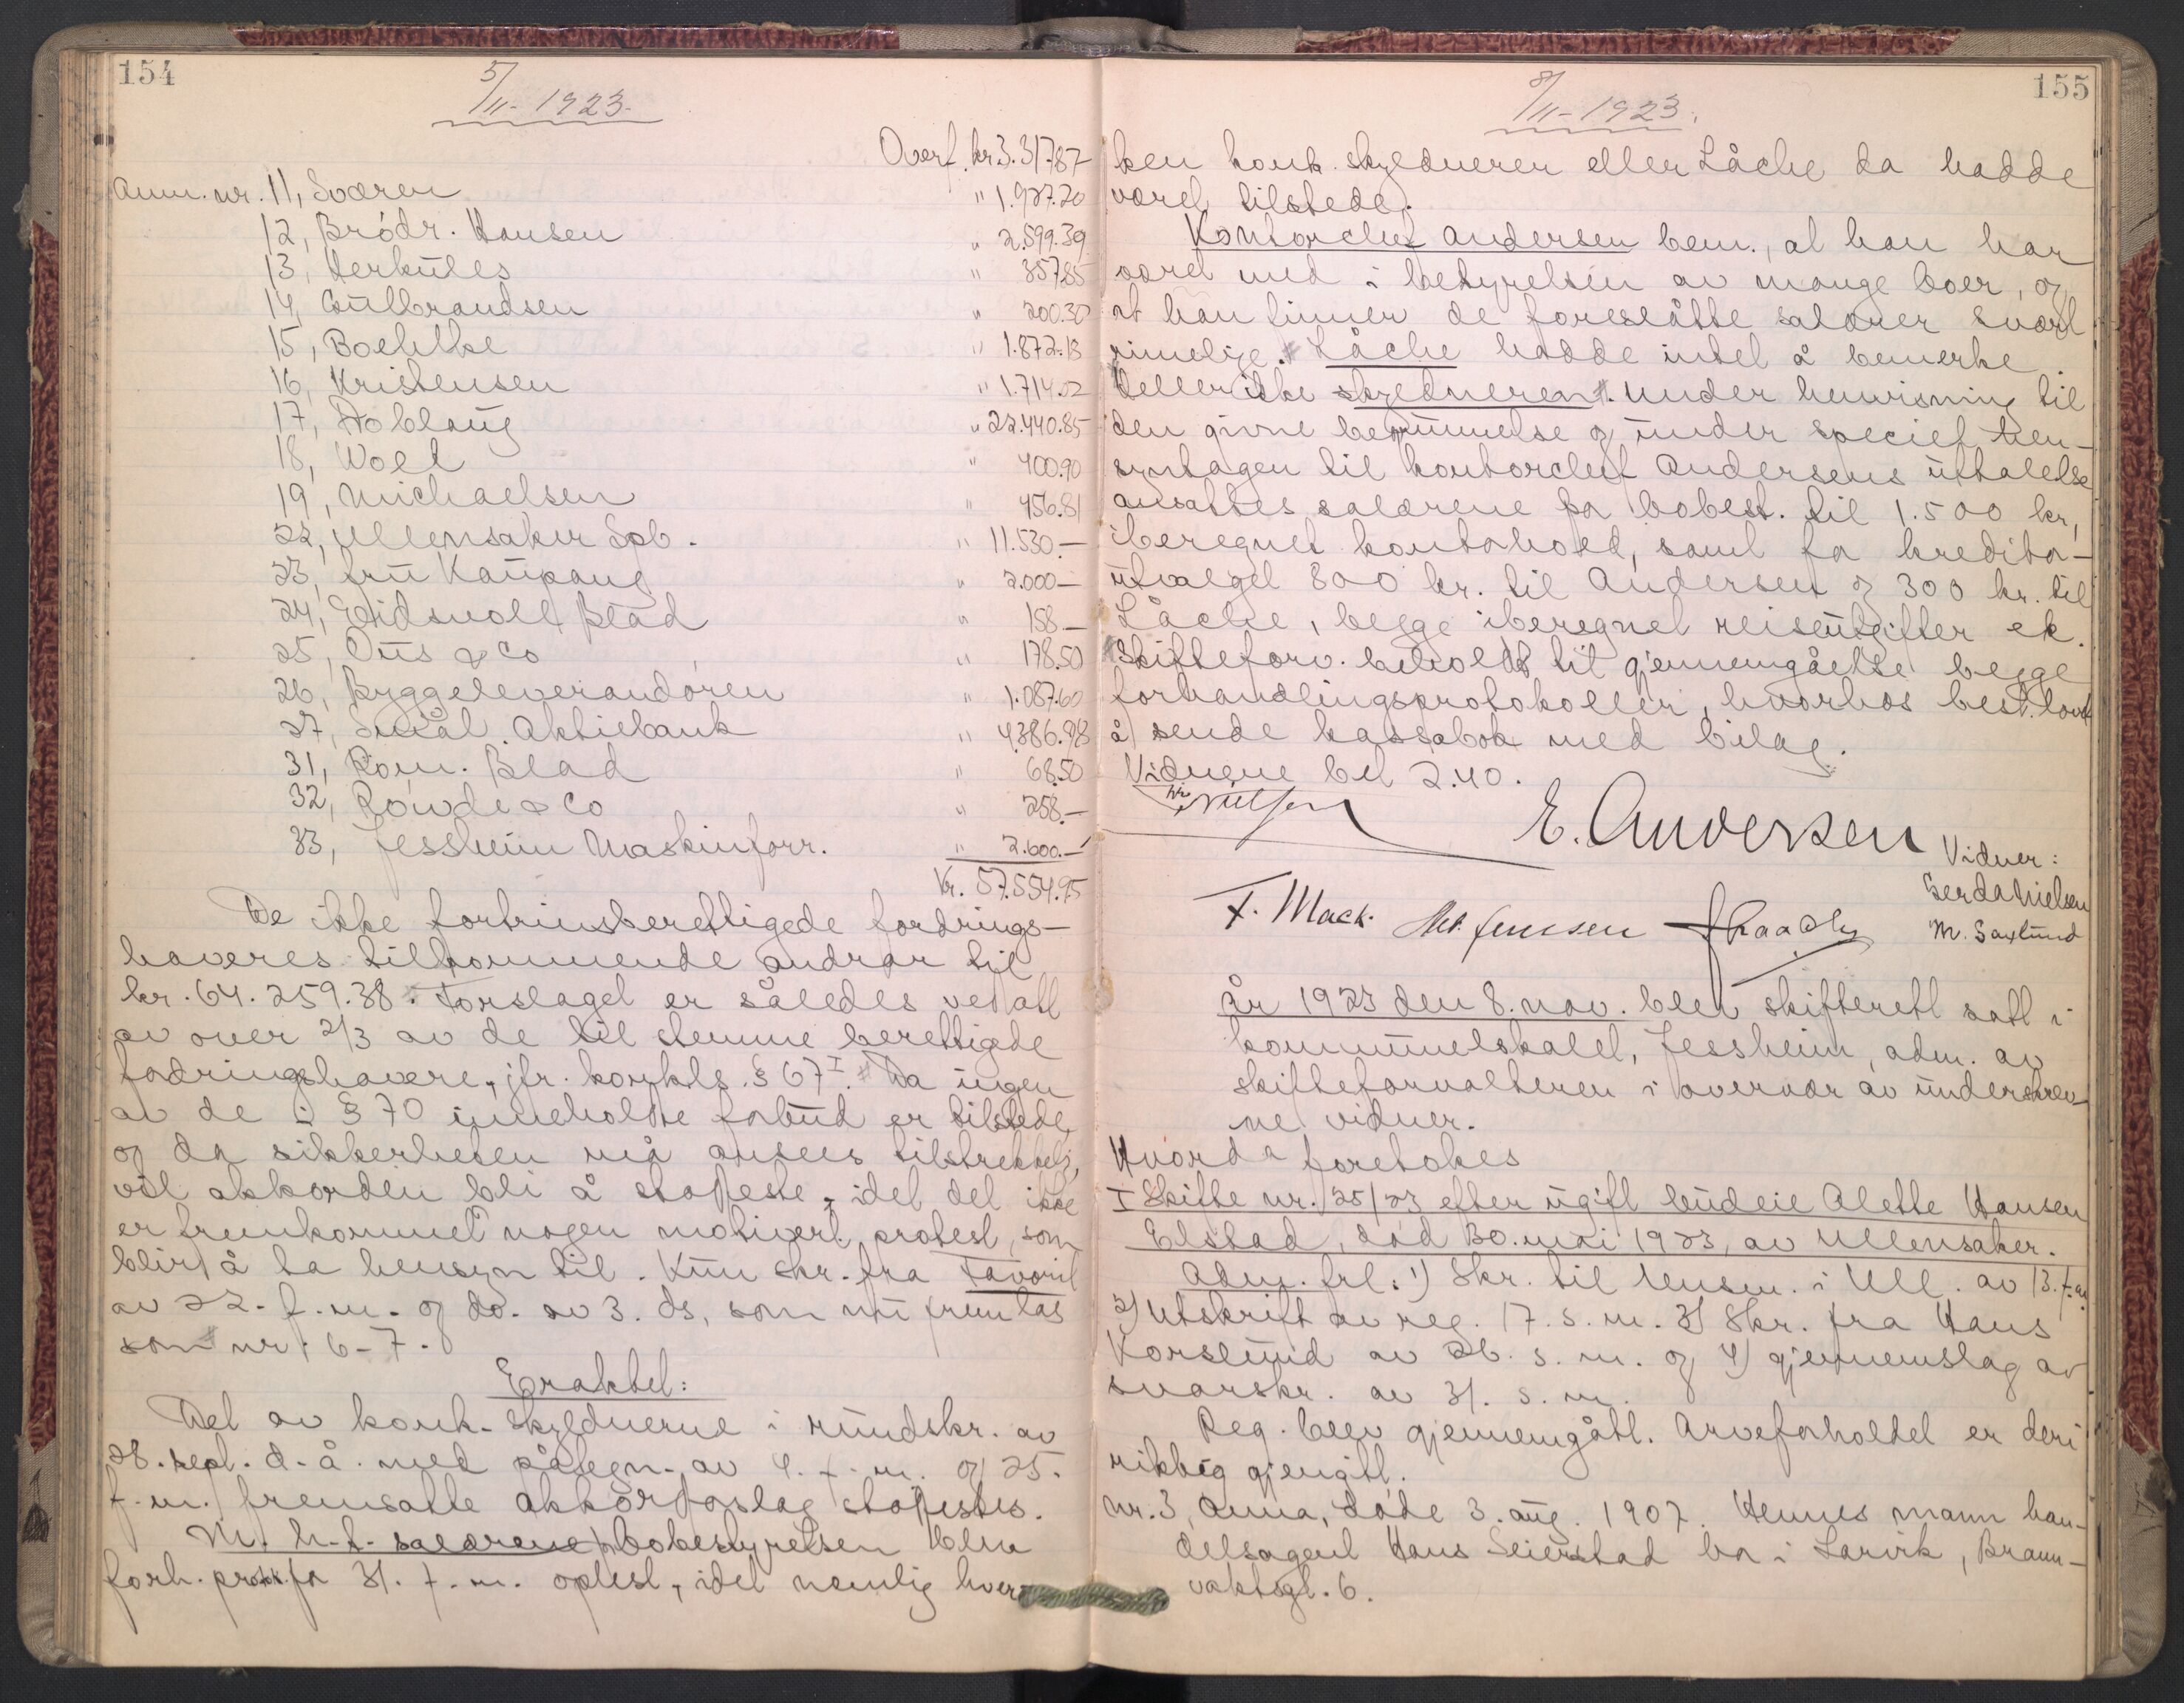 154
5/11-1923.
Overf. kr. 3.317.87
Anm. nr. 11, Sværen " 1.927.20
12, Brødr. Hansen " 2.599.39
13, Herkules " 357.85
14, Gulbrandsen " 200.30
15, Boehlke " 1.872.13
16, Kristensen " 1.714.02
17, " 22.440.85
18, Wolt " 400.90
19, Michaelsen " 456.81
22, Ullensaker Spb. " 11.530.—
23, fru Kaupang " 2.000—
24, Eidsvoll Blad " 158—
25, Duus & Co " 178.50
26, Byggeleverandøren " 1.087.60
27, Aktiebank " 4.386.98
31, Rom. Blad " 68.50
32, & Co " 258.—
33, Jessheim Maskinforr. " 2.600.—
Kr. 57.554.95
De ikke fortrinsberettigede fordrings-
haveres tilkommende andrar til
kr. 64.259.38. Forslaget er således vedatt
av over 2/3 av de til stemme berettigede
fordringshavere, jfr. konkls. § 67 I. Da ingen
av de i § 70 inneholdte forbud er tilstede,
og da sikkerheten må ansees tilstrekkelig,
vil akkorden bli å stafeste, idet det ikke
er fremkommet nogen motivert protest, som
blir å ta hensyn til. Kun skr. fra Favorit
av 22. f.m. og do. av 3. ds, som nu fremlas
som nr. 6-7.
Eraktet:
Det av konk. skyldnerne i rundskr. av
28. sept. d.å. med påtegn. av 4. f.m. og 25.
f.m. fremsatte akkorforslag stafestes.
M.h.t. salærene bobestyrelsen blev
forh. prot. for 31. f.m. oplest, idet nemlig hver-
8/11-1923.
155
ken konk. skyldneren eller Låche da hadde
været tilstede.
Kontorchef Andersen bem., at han har
været med i bestyrelsen av mange boer, og
at han finner de foreslåtte salærer svært
rimelige. Låche hadde intet å bemerke
heller ikke skyldneren. Under henvisning til
den givne begrunnelse og under speciel hen-
syntagen til kontorchef Andersens uttalelse
ansattes salærene for bobest. til 1.500 kr,
iberegnet kontorhold, samt for kreditor-
utvalget 800 kr. til Andersen og 300 kr. til
Låche, begge iberegnet reiseutgifter etc.
Skifteforv. beholdt til gjennemgåelse begge
forhandlingsprotokoller, hvorhos best. lovet
å sende kassabok med bilag.
Vidnene bet 2.40.
E. Andersen
Vidner:
Gerda Nielsen
M. Saxlund
F. Mack. Jensen
År 1923 den 8. nov. blev skifterett satt i
kommunelokalet, Jessheim, adm. av
skifteforvalteren i overvær av underskrev-
ne vidner.
Hvorda foretokes
I Skifte nr. 25/23 efter ugift budeie Alette Hansen
Elstad, død 30. mai 1923, av Ullensaker.
Adm. frl.: 1) Skr. til lensm. i Ull. av 13. f.m.
2) Utskrift av reg. 17. s.m. 3) Skr. fra Hans
Korslund av 26. s.m. og 4) gjennemslag av
svarskr. av 31. s.m.
Reg. blev gjennemgått. Arveforholdet er deri
riktig gjengitt.
Nr. 3, Anna, døde 3. aug. 1907. Hennes mann han-
delsagent Hans Seierstad bor i Larvik, Brann-
vaktsgt. 6.